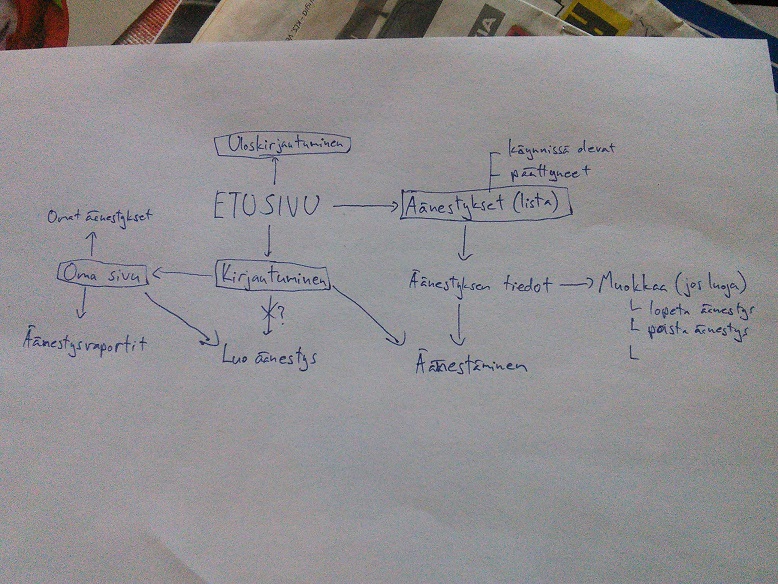 Uloskirjautuminen
käynnissä olevat
päättyneet
ETUSIVU
Äänestykset (lista)
Omat äänestykset
Oma sivu
Kirjautuminen
Äänestyksen tiedot
Muokkaa (jos luoja)
lopeta äänestys
poista äänestys
X?
Äänestysraportit
Luo äänestys
Äänestäminen